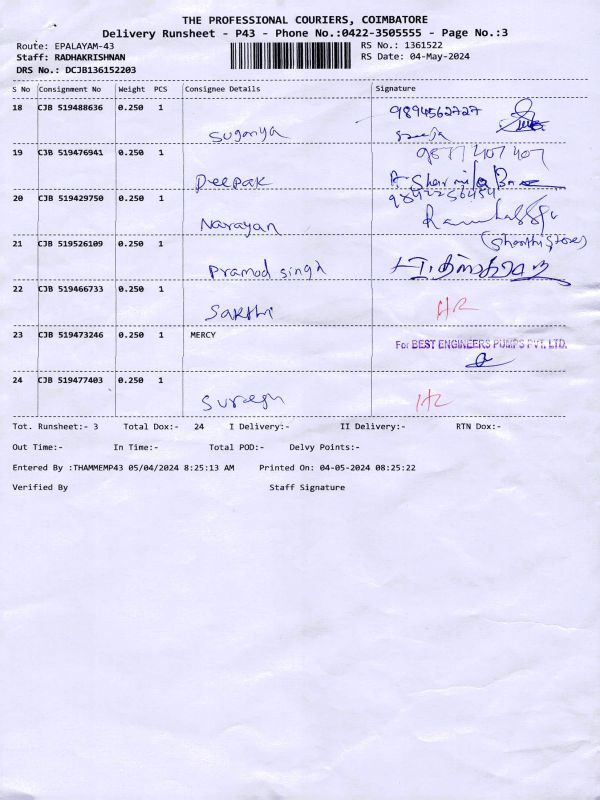 THE PROFESSIONAL COURIERS, COIMBATORE
Delivery Runsheet - P43 - Phone No.:0422-3505555 - Page No.:3
Route: EPALAYAM-43 RS No.: 1361522
Staff: RADHAKRISHNAN RS Date: 04-May-2024
DRS No.: DCJB136152203
S No Consignment No Weight PCS Consignee Details Signature
18 CJB 519488636 0.250 1 9894562727
Suganya
19 CJB 519476941 0.250 1 9877407407
Deepak
9842256454
20 CJB 519429750 0.250 1
Narayan
21 CJB 519526109 0.250 1
Pramod singh
22 CJB 519466733 0.250 1
Sakthi
23 CJB 519473246 0.250 1 MERCY For BEST ENGINEERS PUMPS PVT. LTD.
24 CJB 519477403 0.250 1
Suresh
Tot. Runsheet:- 3 Total Dox:- 24 I Delivery:- II Delivery:- RTN Dox:-
Out Time:- In Time:- Total POD:- Delvy Points:-
Entered By :THAMMEMP43 05/04/2024 8:25:13 AM Printed On: 04-05-2024 08:25:22
Verified By Staff Signature